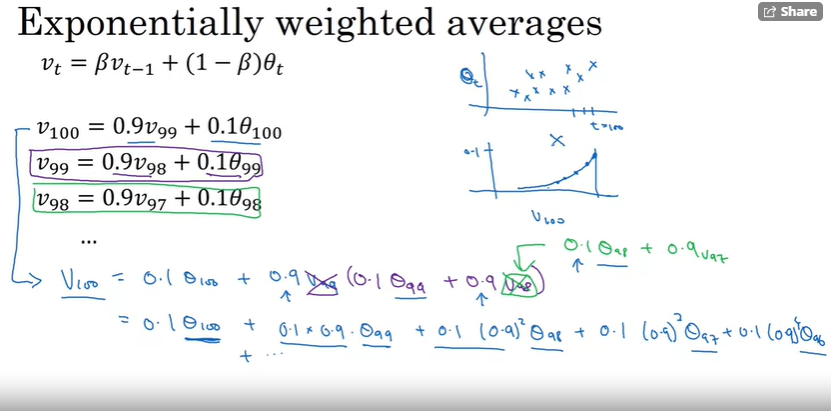 Share
Exponentially weighted averages
vₜ = βvₜ₋₁ + (1 − β)θₜ
θₜ
t=100
v₁₀₀ = 0.9v₉₉ + 0.1θ₁₀₀
0.1
v₉₉ = 0.9v₉₈ + 0.1θ₉₉
v₉₈ = 0.9v₉₇ + 0.1θ₉₈
V₁₀₀
...
0.1 θ₉₈ + 0.9 v₉₇
V₁₀₀ = 0.1 θ₁₀₀ + 0.9 v₉₉ (0.1 θ₉₉ + 0.9 v₉₈)
= 0.1 θ₁₀₀ + 0.1 × 0.9 · θ₉₉ + 0.1 (0.9)² θ₉₈ + 0.1 (0.9)³ θ₉₇ + 0.1 (0.9)⁴ θ₉₆
+ ...